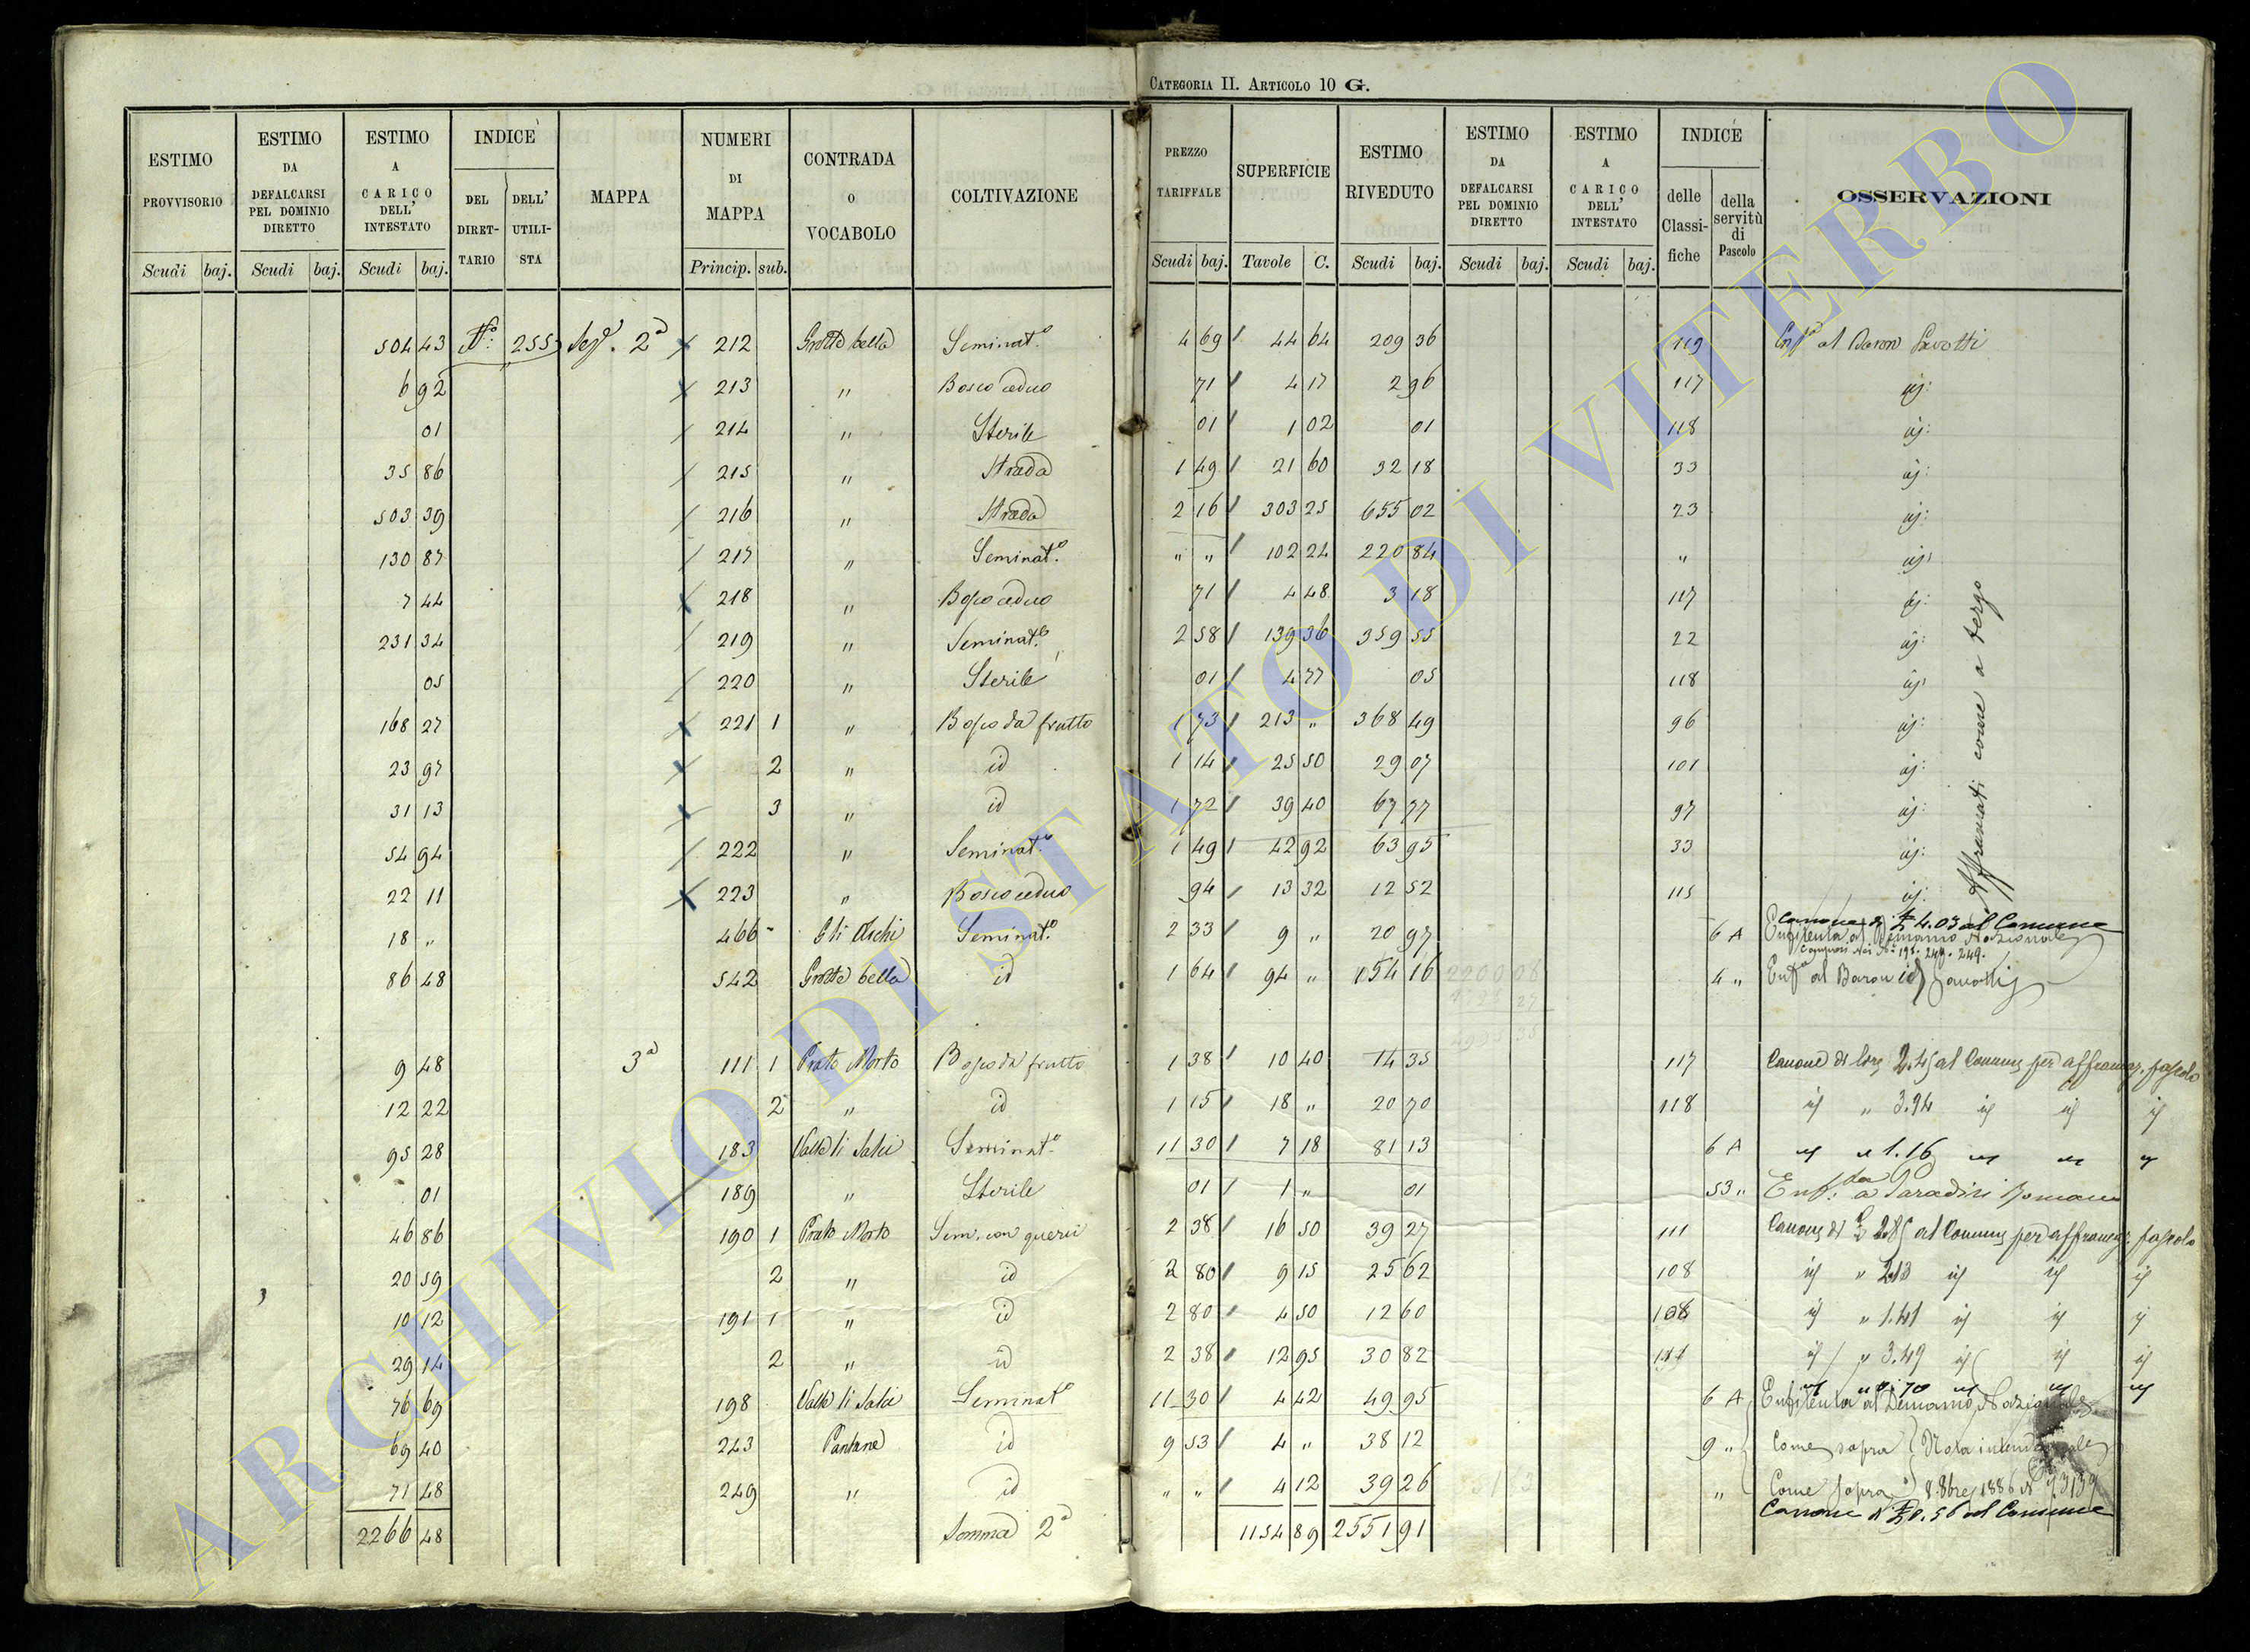 CATEGORIA II. ARTICOLO 10 G.
ESTIMO PROVVISORIO Scudi baj.
ESTIMO DA DEFALCARSI PEL DOMINIO DIRETTO Scudi baj.
ESTIMO A CARICO DELL' INTESTATO Scudi baj.
INDICE DEL DIRETTARIO DELL' UTILISTA
MAPPA
NUMERI DI MAPPA Princip. sub.
CONTRADA O VOCABOLO
COLTIVAZIONE
PREZZO TARIFFALE Scudi baj.
SUPERFICIE Tavole C.
ESTIMO RIVEDUTO Scudi baj.
ESTIMO DA DEFALCARSI PEL DOMINIO DIRETTO Scudi baj.
ESTIMO A CARICO DELL' INTESTATO Scudi baj.
INDICE delle Classifiche della servitù di Pascolo
OSSERVAZIONI
504 43 N.º 255 2ª 212 Grotte bella Seminatº 4 69 44 64 209 36 119 al Baron
6 92 213 " Bosco ceduo 71 4 17 2 96 117 id:
01 214 " Sterile 01 1 02 01 118 id:
35 86 215 " Strada 1 49 21 60 32 18 33 id:
503 39 216 " Strada 2 16 303 25 655 02 23 id:
130 87 217 " Seminatº " " 102 24 220 84 " id:
7 44 218 " Bosco ceduo 71 4 48 3 18 117 id:
231 34 219 " Seminatº 2 58 139 36 359 55 22 id:
05 220 " Sterile 01 4 77 05 118 id:
168 27 221 1 " Bosco da frutto 1 73 213 " 368 49 96 id:
23 97 2 " id 1 14 25 50 29 07 101 id:
31 13 3 " id 1 72 39 40 67 77 97 id:
54 94 222 " Seminatº 1 49 42 92 63 95 33 id:
22 11 223 " Bosco ceduo 94 13 32 12 52 115 id:
Affrancati come a tergo
Canone di £ 4.03 al Comune
18 " 466 Gli Archi Seminatº 2 33 9 " 20 97 6 A Enfiteuta al Demanio Nazionale
86 48 542 Grotte bella id 1 64 94 " 154 16 4 " Enfª al Baron
9 48 3ª 111 1 Prato Morto Bosco da frutto 1 38 10 40 14 35 117 Canone di lire 2.45 al Comune per affrancaz. pascolo
12 22 2 " id 1 15 18 " 20 70 118 id " 3.94 id id id
95 28 183 Valle li Salci Seminatº 11 30 7 18 81 13 6 A id " 1.16 id id id
01 189 " Sterile 01 1 " 01 53 " Enf.ta a Paradisi Romano
46 86 190 1 Prato Morto Sem. con querci 2 38 16 50 39 27 111 Canone di £ 2.85 al Comune per affrancaz. pascolo
20 59 2 " id 2 80 9 15 25 62 108 id " 2.13 id id id
10 12 191 1 " id 2 80 4 50 12 60 108 id " 1.41 id id id
29 14 2 " id 2 38 12 95 30 82 111 id " 3.49 id id id
id " 0.70 id id id
76 69 198 Valle li Salci Seminatº 11 30 4 42 49 95 6 A Enfiteuta al Demanio Nazionale
69 40 243 Pantane id 9 53 4 " 38 12 9 " Come sopra Nota intendenziale
71 48 249 " id " " 4 12 39 26 " Come sopra 8 8bre 1886 N 73139
Canone di £ 0.56 al Comune
2266 48 Somma 2ª 1154 89 2551 91
ARCHIVIO DI STATO DI VITERBO